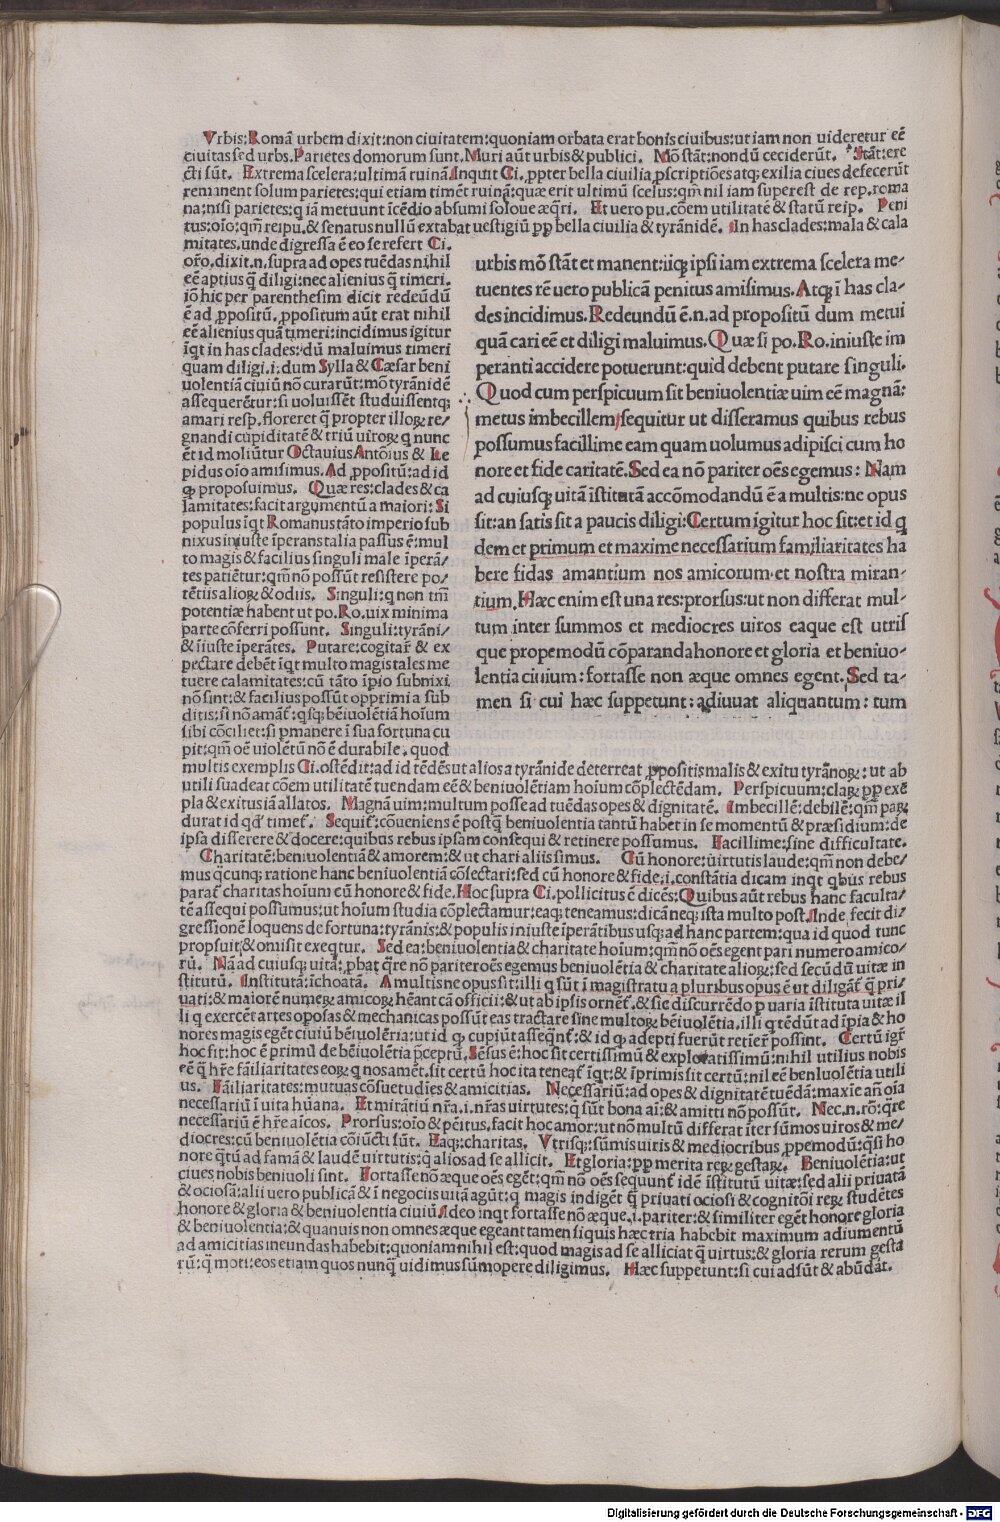 Vrbis:Romā urbem dixit:non ciuitatem:quoniam orbata erat bonis ciuibus:ut iam non uideretur eē
ciuitas sed urbs.Parietes domorum sunt.Muri aūt urbis & publici. Mō stāt:nondū ceciderūt. Stāt:ere
cti sūt. Extrema scelera:ultimā ruinā Inquit Ci. ꝓpter bella ciuilia ꝓscriptiōes atq; exilia ciues defecerūt
remanent solum parietes:qui etiam timēt ruinā:quæ erit ultimū scelus:qm̄ nil iam superest de rep.roma
na:nisi parietes:q iā metuunt īcēdio absumi soloue æq̄ri. Et uero pu.cōem utilitatē & statū reip. Peni
tus:oīo:qm̄ reipu.& senatus nullū extabat uestigiū ꝓp bella ciuilia & tyrānidē. In has clades:mala & cala
mitates.unde digressa ē eo se refert Ci.
oīo.dixit.n.supra ad opes tuēdas nihil
eē aptius q̄ diligi:nec alienius q̄ timeri.
iō hic per parenthesim dicit redeūdū
ē ad ꝓpositū.ꝓpositum aūt erat nihil
eē alienius quā timeri:incidimus igitur
īqt in has clades:dū maluimus timeri
quam diligi.i:dum Sylla & Cæsar beni
uolentiā ciuiū nō curarūt:mō tyrāni dē
assequerētur:si uoluissēt studuissentq;
amari resp.floreret q̄ propter illoꝝ re/
gnandi cupiditatē & triū uiroꝝ q nunc
ēt id moliūtur Octauius Antōius & Le
pidus oīo amisimus. Ad ꝓpositū:ad id
qđ proposuimus. Quæ res:clades & ca
lamitates:facit argumentū a maiori: Si
populus īqt Romanus tāto imperio sub
nixus iniuste īperans talia passus ē:mul
to magis & facilius singuli male īperā/
tes patiētur:qm̄ nō possūt resistere po/
tētiis alioꝝ & odiis. Singuli:q non tm̄
potentiæ habent ut po.Ro.uix minima
parte cōferri possunt. Singuli:tyrāni/
& īiuste īperātes. Putare:cogitar̄ & ex
pectare debēt īqt multo magis tales me
tuere calamitates:cū tāto īpio subnixi
nō sint:& facilius possūt opprimi a sub
ditis:si nō amāt̄:q̄sq; bēiuolētiā hoīum
sibi cōciliet:si ꝑmanere ī sua fortuna cu
pit:qm̄ oē uiolētū nō ē durabile. quod
urbis mō stāt et manent:iiq; ipsi iam extrema scelera me-
tuentes rē uero publicā penitus amisimus.Atq; ī has cla-
des incidimus.Redeundū ē.n.ad propositū dum metui
quā cari eē et diligi maluimus.Quæ si po.Ro.iniuste im
peranti accidere potuerunt:quid debent putare singuli.
Quod cum perspicuum sit beniuolentiæ uim eē magnā:
metus imbecillem sequitur ut disseramus quibus rebus
possumus facillime eam quam uolumus adipisci cum ho
nore et fide caritatē.Sed ea nō pariter oēs egemus: Nam
ad cuiusq; uitā īstitutā accōmodandū ē a multis:ne opus
sit:an satis sit a paucis diligi:Certum igitur hoc sit:et id q
dem et primum et maxime necessarium familiaritates ha
bere fidas amantium nos amicorum et nostra miran-
tium.Hæc enim est una res:prorsus:ut non differat mul-
tum inter summos et mediocres uiros eaque est utris
que propemodū cōparanda honore et gloria et beniuo-
lentia ciuium: fortasse non æque omnes egent.Sed ta-
men si cui hæc suppetunt: adiuuat aliquantum: tum
multis exemplis Ci.ostēdit:ad id tēdēs ut alios a tyrānide deterreat ꝓpositis malis & exitu tyrānoꝝ: ut ab
utili suadeat cōem utilitatē tuendam eē & beniuolētiam hoīum cōplectēdam. Perspicuum:claꝝ ꝑp exē
pla & exitus iā allatos. Magnā uim:multum posse ad tuēdas opes & dignitatē. Imbecillē:debilē:qm̄ paꝝ
durat id qđ timet̄. Sequit̄:cōueniens ē postq̄ beniuolentia tantū habet in se momentū & præsidium:de
ipsa disserere & docere:quibus rebus ipsam consequi & retinere possumus. Facillime:sine difficultate.
Charitatē:beniuolentiā & amorem:& ut chari aliis simus. Cū honore:uirtutis laude:qm̄ non debe/
mus q̄cunq; ratione hanc beniuolentiā cōsectari:sed cū honore & fide,i.constātia dicam inqt qbus rebus
parat̄ charitas hoīum cū honore & fide.Hoc supra Ci.pollicitus ē dicēs:Quibus aūt rebus hanc faculta/
tē assequi possumus:ut hoīum studia cōplectamur:eaq; teneamus:dicā neq; ista multo post.Inde fecit di/
gressionē loquens de fortuna:tyrānis:& populis iniuste īperātibus usq; ad hanc partem:qua id quod tunc
propsuit:& omisit exeqtur. Sed ea:beniuolentia & charitate hoīum:qm̄ nō oēs egent pari numero amico/
rū. Nā ad cuiusq; uitā:ꝓbat q̄re nō pariter oēs egemus beniuolētia & charitate alioꝝ:sed secūdū uitæ in
stitutū. Institutā:īchoatā. A multis ne opus sit:illi q sūt ī magistratu a pluribus opus ē ut diligāt̄ q̄ pri/
uati:& maiorē numeꝝ amicoꝝ hēant cā officii:& ut ab ipsis ornēt̄.& sic discurrēdo ꝑ uaria īstituta uitæ il
li q exercēt artes oposas & mechanicas possūt eas tractare sine multoꝝ bēiuolētia.illi q tēdūt ad īpia & ho
nores magis egēt ciuiū bēiuolētia:ut id qđ cupiūt asseqnt̄:& id qđ adepti fuerūt retier̄ possint. Certū igr̄
hoc sit:hoc ē primū de bēiuolētia p̄ceptū.Sēsus ē:hoc sit certissimū & exploratissimū:nihil utilius nobis
eē q̄ hr̄e fāiliaritates eoꝝ q nos amēt.sit certū hoc ita teneat̄ īqt:& īprimis sit certū:nil eē beniuolētia utili
us. Fāiliaritates:mutuas cōsuetudīes & amicitias. Necessariū:ad opes & dignitatē tuēdā:maxīe an̄ oīa
necessariū ī uita hūana. Et mirātiū nr̄a.i.nr̄as uirtutes:q sūt bona aī:& amitti nō possūt. Nec.n.rō:q̄re
necessariū ē hr̄e aīcos. Prorsus:oīo & pēitus,facit hoc amor:ut nō multū differat īter sūmos uiros & me/
diocres:cū beniuolētia cōiūcti sūt. Eaq;:charitas. Vtrisq;:sūmis uiris & mediocribus ꝓpemodū:q̄si ho
nore q̄tū ad famā & laudē uirtutis:q̄ alios ad se allicit. Et gloria:ꝑp merita reꝝ gestaꝝ. Beniuolētia:ut
ciues nobis beniuoli sint. Fortasse nō æque oēs egēt:qm̄ nō oēs sequunt̄ idē īstitutū uitæ:sed alii priuatā
& ociosā:alii uero publicā & ī negociis uitā agūt:q magis indigēt q̄ priuati ociosi & cognitōi reꝝ studētes
honore & gloria & beniuolentia ciuiū Ideo inqt fortasse nō æque.i.pariter:& similiter egēt honore gloria
& beniuolentia:& quanuis non omnes æque egeant tamen siquis hæc tria habebit maximum adiumentū
ad amicitias ineundas habebit:quoniam nihil est:quod magis ad se alliciat q̄ uirtus:& gloria rerum gesta
rū:q̄ moti:eos etiam quos nunq̄ uidimus sūmopere diligimus. Hæc suppetunt:si cui adsūt & abūdāt.
Digitalisierung gefördert durch die Deutsche Forschungsgemeinschaft - DFG